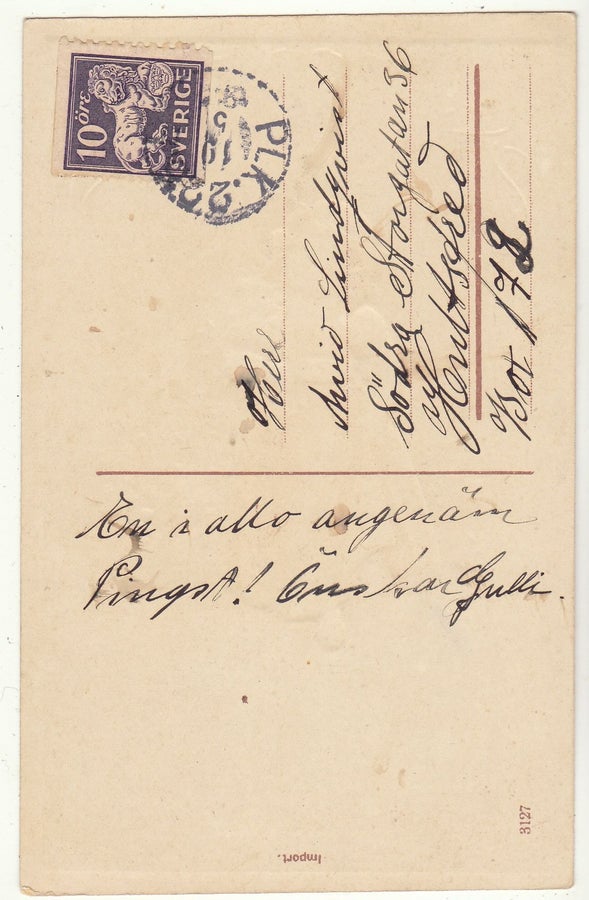 10 öre
SVERIGE
PLK. 2
Herr
Arvid Lindqvist
Södra Storgatan 36
Box 178
En i allo angenäm
Pingst! Önskar Gulli.
3127
Import.